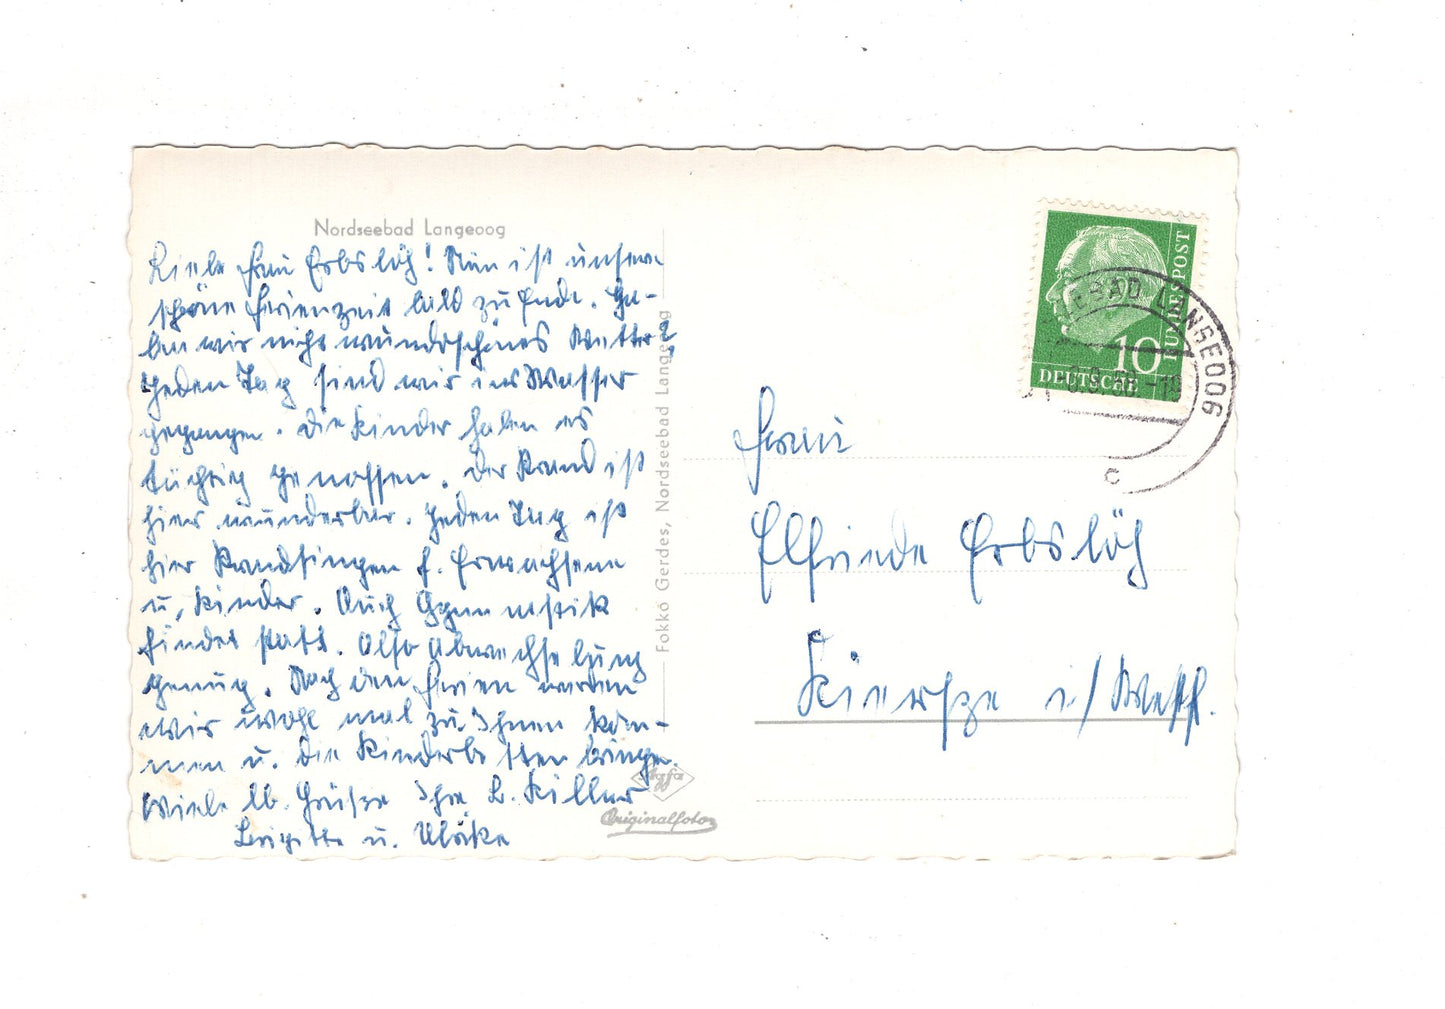 Nordseebad Langeoog
Liebe Frau Erbslöh! Nun ist unsere
schöne Ferienzeit bald zu Ende. Ha-
ben wir nicht wunderschönes Wetter?
Jeden Tag sind wir ins Wasser
gegangen. Die Kinder haben es
tüchtig genossen. Der Strand ist
hier wunderbar. Jeden Tag ist
hier Strandsingen f. Erwachsene
u. Kinder. Auch Gymnastik
findet statt. Also Abwechselung
genug. Nach den Ferien werden
wir wohl mal zu Ihnen kom-
men u. die Kinderbetten bringen.
Viele lb. Grüße Ihre L.
Brigitte u. Ulrike
Fokko Gerdes, Nordseebad Langeoog
Agfa
Originalfoto
DEUTSCHE
BUNDESPOST
10
LANGEOOG
c
Frau
Elfriede Erbslöh
Kierspe i/Westf.